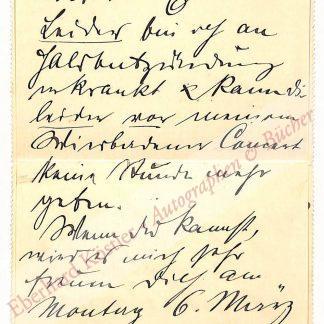 Leider bin ich an
Halsentzündung
erkrankt & kann Dir
leider vor meinem
Wiesbadener Concert
keine Stunde mehr
geben.
Wenn Du kannst,
wird es mich sehr
freuen Dich am
Montag 6. März
Eberhard Köstler Autographen & Bücher